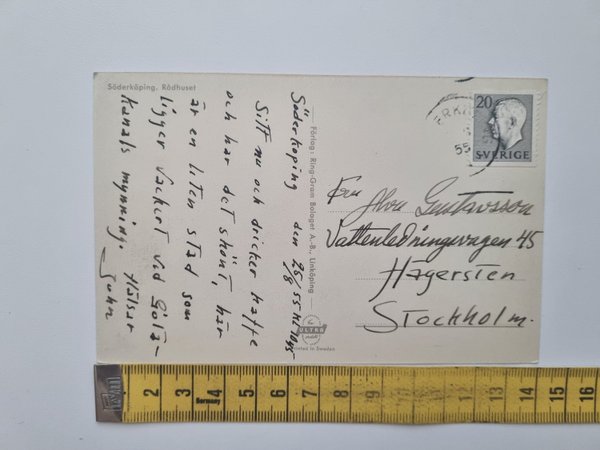 Söderköping. Rådhuset
Söderköping den 25/8 55 kl
Sitt nu och dricker kaffe
och har det skönt, här
är en liten stad som
ligger vackert vid Göta-
kanals mynning.
Hälsar
Förlag: Ring-Gram Bolaget A.-B., Linköping
ULTRA
Printed in Sweden
ERK
55
20
SVERIGE
Fru Alva Gustavsson
Vattenledningsvägen 45
Hägersten
Stockholm.
2 3 4 5 6 7 8 9 10 11 12 13 14 15 16
Germany